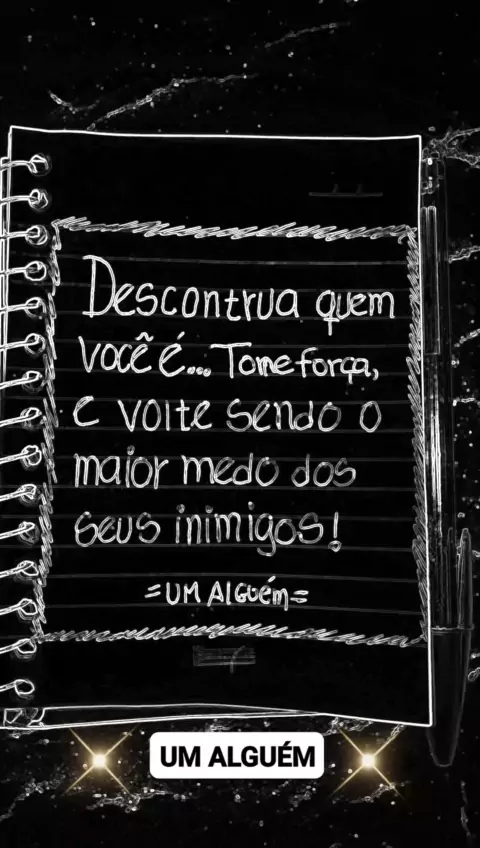 Descontrua quem
você é... Tome força,
e volte sendo o
maior medo dos
seus inimigos!
=UM ALGUÉM=
UM ALGUÉM